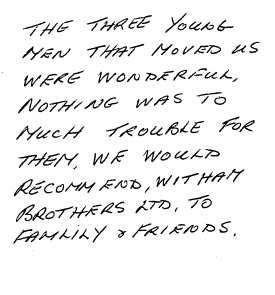 THE THREE YOUNG
MEN THAT MOVED US
WERE WONDERFUL,
NOTHING WAS TO
MUCH TROUBLE FOR
THEM, WE WOULD
RECOMMEND, WITHAM
BROTHERS LTD, TO
FAMLILY & FRIENDS.